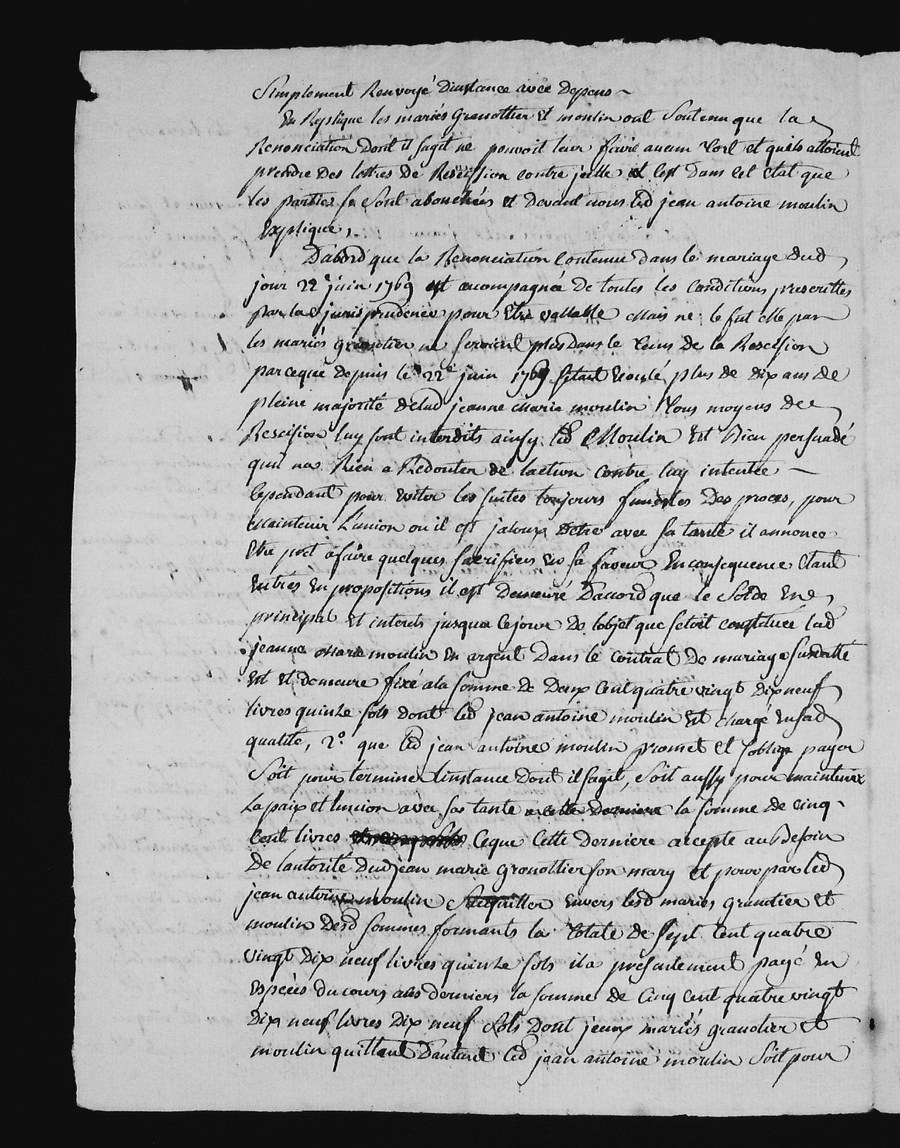 Simplement Renvoyé dinstance avec depens ~
En Replique les mariés Granottier et moulin ont Soutenu que la
Renonciation dont il sagit ne pouvoit leur faire aucun tort et quils alloient
prendre des lettres de Rescision contre jcelle et cest dans cet état que
les parties se sont abouchées et devant nous led jean antoine moulin
Explique,
Dabord que la Renonciation Contenue dans le mariage dud
jour 22e juin 1769 est accompagnée de toutes les Conditions prescrittes
par la jurisprudence pour Etre vallable Mais ne le fut elle pas
les mariés granotier ne seroient plus dans le tems de la Rescision
parceque depuis le 22e juin 1769 setant ecoulé plus de dix ans de
pleine majorité delad jeanne Marie moulin tous moyens de
Rescision luy sont interdits ainsy led Moulin Est Bien persuadé
quil na Rien a Redouter de laction contre luy intentée —
Cependant pour eviter les suites toujours funestes des proces, pour
Maintenir L'union ou il est jaloux detre avec sa tante il annonce
Etre pret a faire quelques sacrifices en sa faveur En consequence étant
Entrés en propositions il est demeuré Daccord que le Solde en
principal et interets jusqua cejour de lobjet que setoit constituée lad
jeanne Marie moulin En argent dans le contrat de mariage susdatté
Est et demeure fixé ala somme de deux Cent quatre vingt dix neuf
livres quinze sols dont led jean antoine moulin est chargé ensad
qualité, 2o. que led jean antoine moulin promet et soblige payer
Soit pour terminer linstance dont il sagit, soit aussy pour maintenir
La paix et lunion avec sa tante a cette derniere la somme de cinq
Cent livres Ceque Cette derniere accepte au Besoin
De lautorité dud jean marie granottier son mary et pour par led
jean antoine moulin Sacquitter envers lesd mariés granotier et
moulin desd sommes formants la totale de sept Cent quatre
vingt dix neuf livres quinze sols il a présentement payé En
Especes du cours ales derniers la somme de Cinq cent quatre vingt
dix neuf livres dix neuf sols dont jceux mariés granotier et
moulin quittent D'autant led jean antoine moulin Soit pour